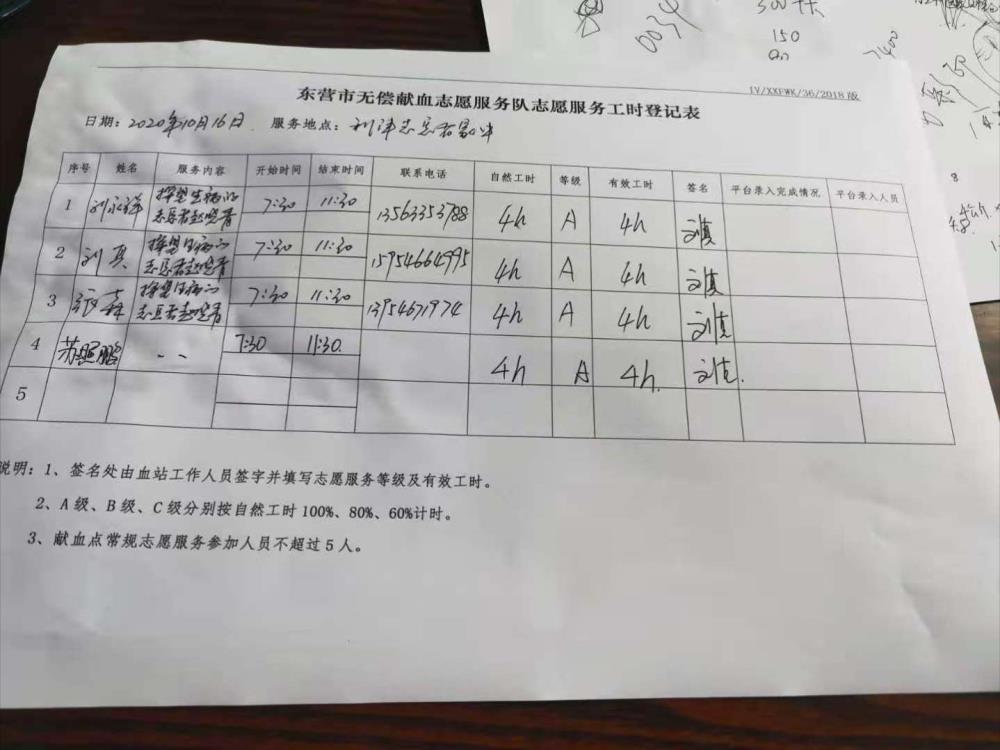 300
0034
150
7400
IV/XXFWK/36/2018版
东营市无偿献血志愿服务队志愿服务工时登记表
日期：2020年10月16日 服务地点：利津志愿者
序号 姓名 服务内容 开始时间 结束时间 联系电话 自然工时 等级 有效工时 签名 平台录入完成情况 平台录入人员
1 刘永祥 探望生病的志愿者赵晓青 7:30 11:30 13563353788 4h A 4h 刘真
2 刘真 探望生病的志愿者赵晓青 7:30 11:30 15954664995 4h A 4h 刘真
3 张森 探望生病的志愿者赵晓青 7:30 11:30 13954671974 4h A 4h 刘真
4 苏鹏 7:30 11:30. 4h A 4h. 刘真.
5
说明：1、签名处由血站工作人员签字并填写志愿服务等级及有效工时。
2、A级、B级、C级分别按自然工时100%、80%、60%计时。
3、献血点常规志愿服务参加人员不超过5人。
8